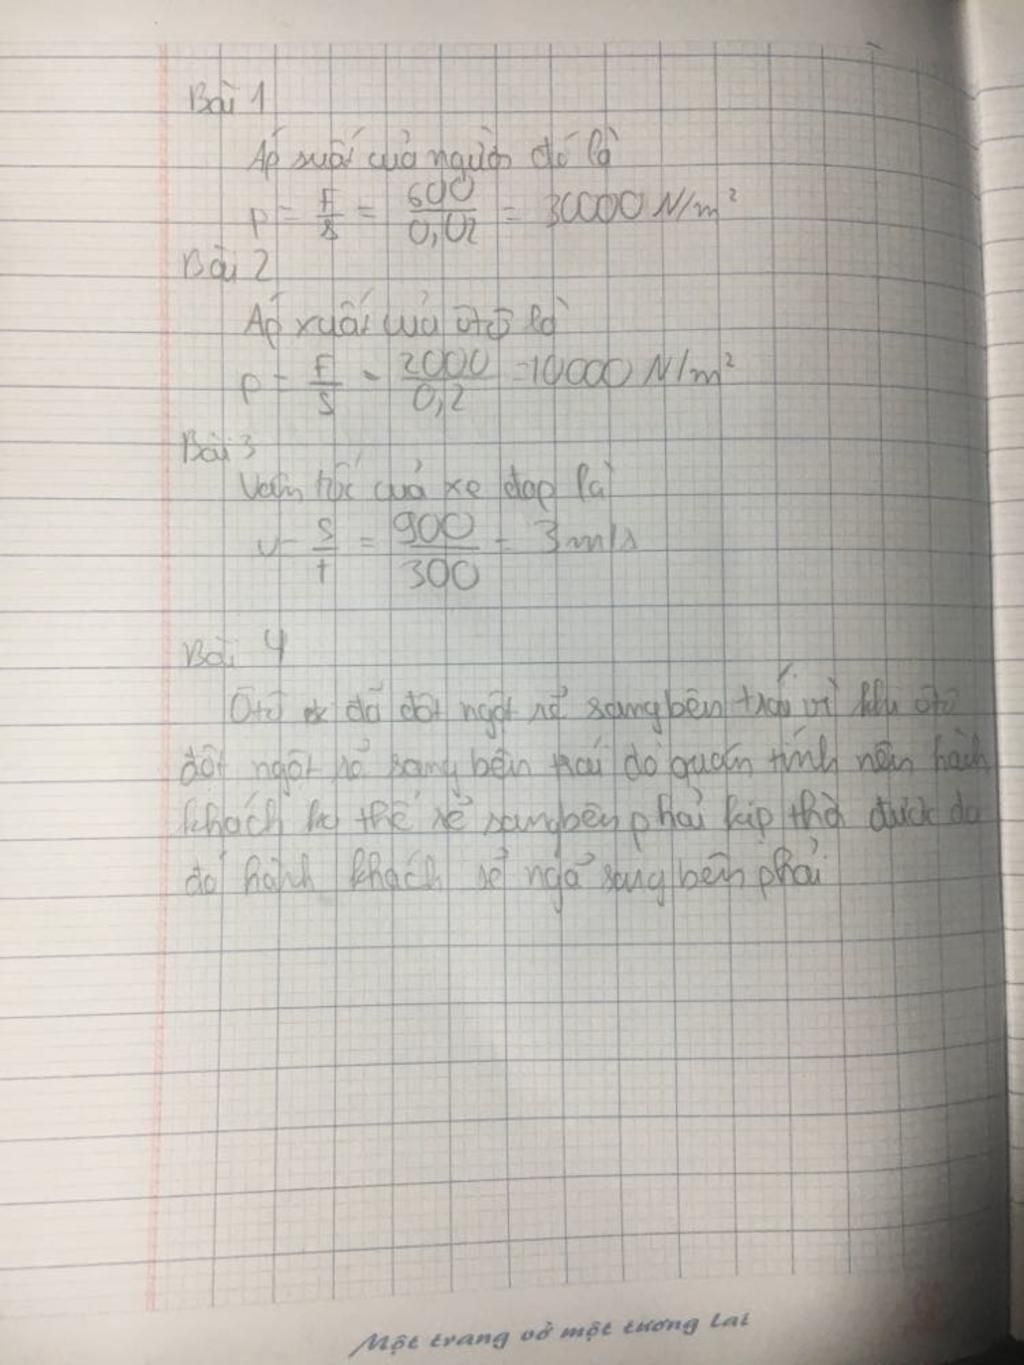 Bài 1
Áp suất của người đó là
p = F/s = 600/0,02 = 30000 N/m²
Bài 2
Áp xuất của ôtô là
p = F/s = 2000/0,2 = 10000 N/m²
Bài 3
Vận tốc của xe đạp là
v = s/t = 900/300 = 3m/s
Bài 4
Ôtô đã đột ngột rẽ sang bên trái vì khi ôtô
đột ngột rẽ sang bên trái do quán tính nên hành
khách thể rẽ sang bên phải kịp thời được do
đó hành khách sẽ ngả sang bên phải
Một trang vở một tương lai